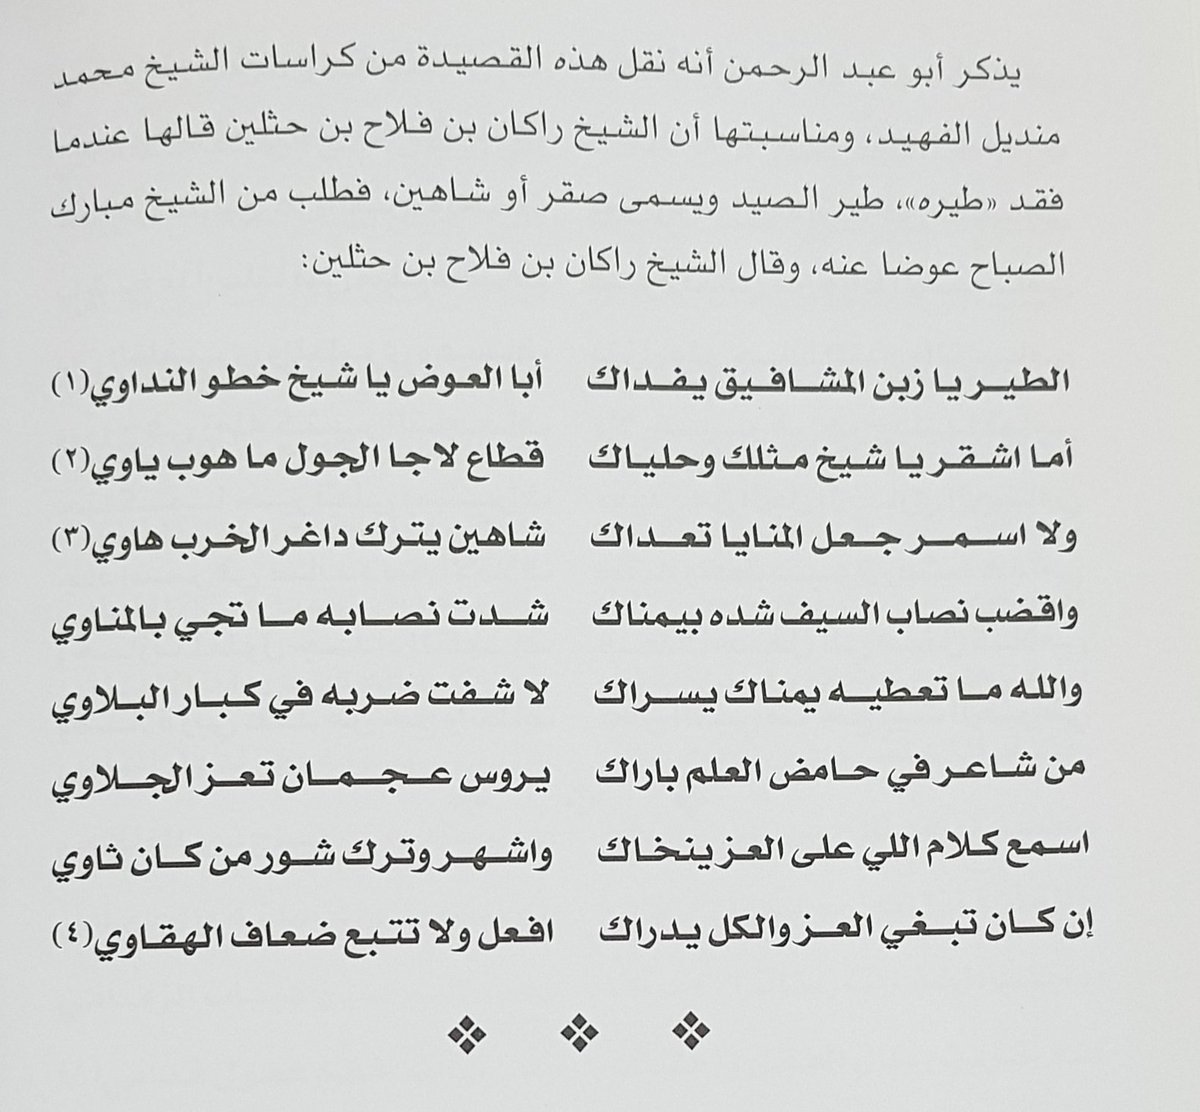 يذكر أبو عبد الرحمن أنه نقل هذه القصيدة من كراسات الشيخ محمد
منديل الفهيد، ومناسبتها أن الشيخ راكان بن فلاح بن حثلين قالها عندما
فقد «طيره»، طير الصيد ويسمى صقر أو شاهين، فطلب من الشيخ مبارك
الصباح عوضا عنه، وقال الشيخ راكان بن فلاح بن حثلين:
الطير يا زبن المشافيق يفداك أبا العوض يا شيخ خطو النداوي(١)
أما اشقر يا شيخ مثلك وحلياك قطاع لاجا الجول ما هوب ياوي(٢)
ولا اسمر جعل المنايا تعداك شاهين يترك داغر الخرب هاوي(٣)
واقضب نصاب السيف شده بيمناك شدت نصابه ما تجي بالمناوي
والله ما تعطيه يمناك يسراك لا شفت ضربه في كبار البلاوي
من شاعر في حامض العلم باراك يروس عجمان تعز الجلاوي
اسمع كلام اللي على العز ينخاك واشهر وترك شور من كان ثاوي
إن كان تبغي العز والكل يدراك افعل ولا تتبع ضعاف الهقاوي(٤)